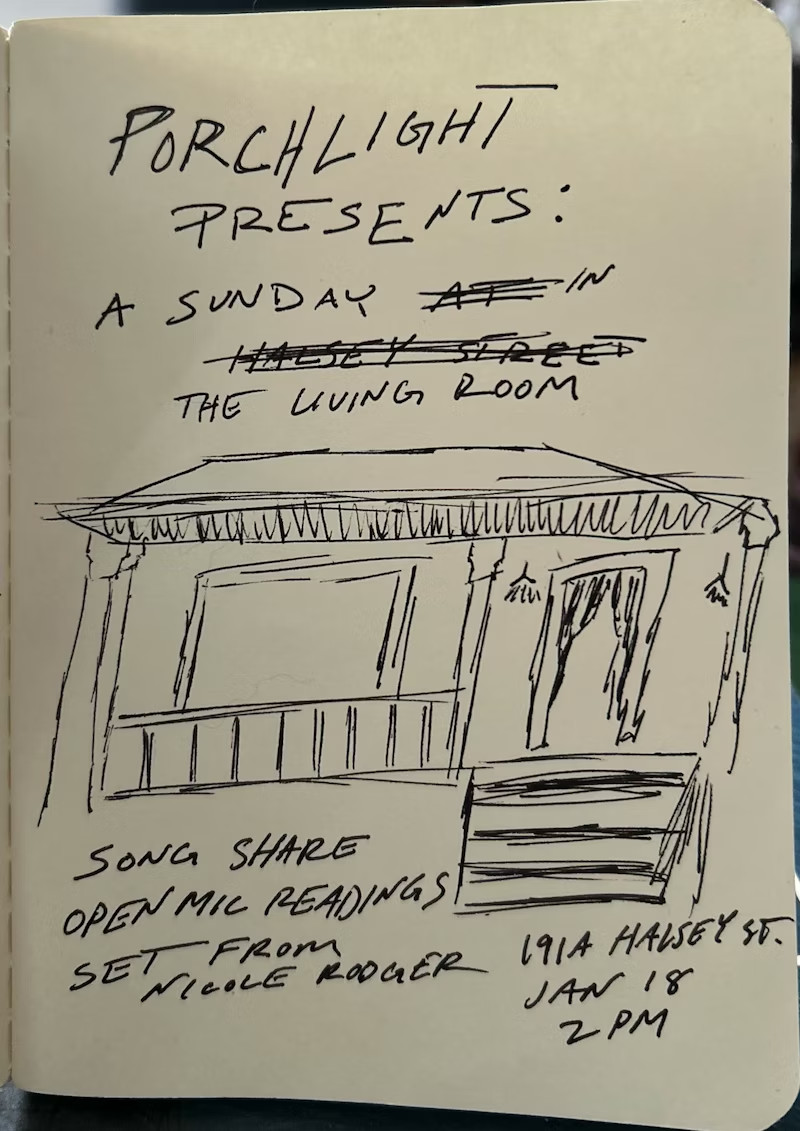 PORCHLIGHT
PRESENTS:
A SUNDAY AT IN
HALSEY STREET
THE LIVING ROOM
SONG SHARE
OPEN MIC READINGS
SET FROM
NICOLE RODGER
191A HALSEY ST.
JAN 18
2 PM